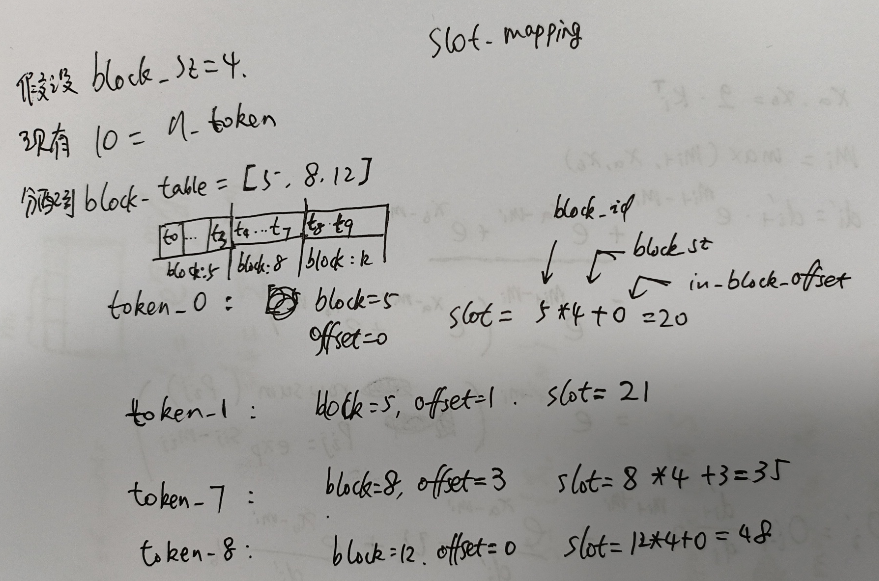 slot-mapping
假设 block_sz=4.
现有 10 = n_token
分配到 block-table = [5, 8, 12]
t0 ... t3 t4 ... t7 t8 t9
block:5 block:8 block:12
block_id
block sz
in-block-offset
token_0: block=5
offset=0
slot = 5*4+0=20
token_1: block=5, offset=1. slot=21
token_7: block=8, offset=3 slot=8*4+3=35
token-8: block=12. offset=0 slot=12*4+0=48